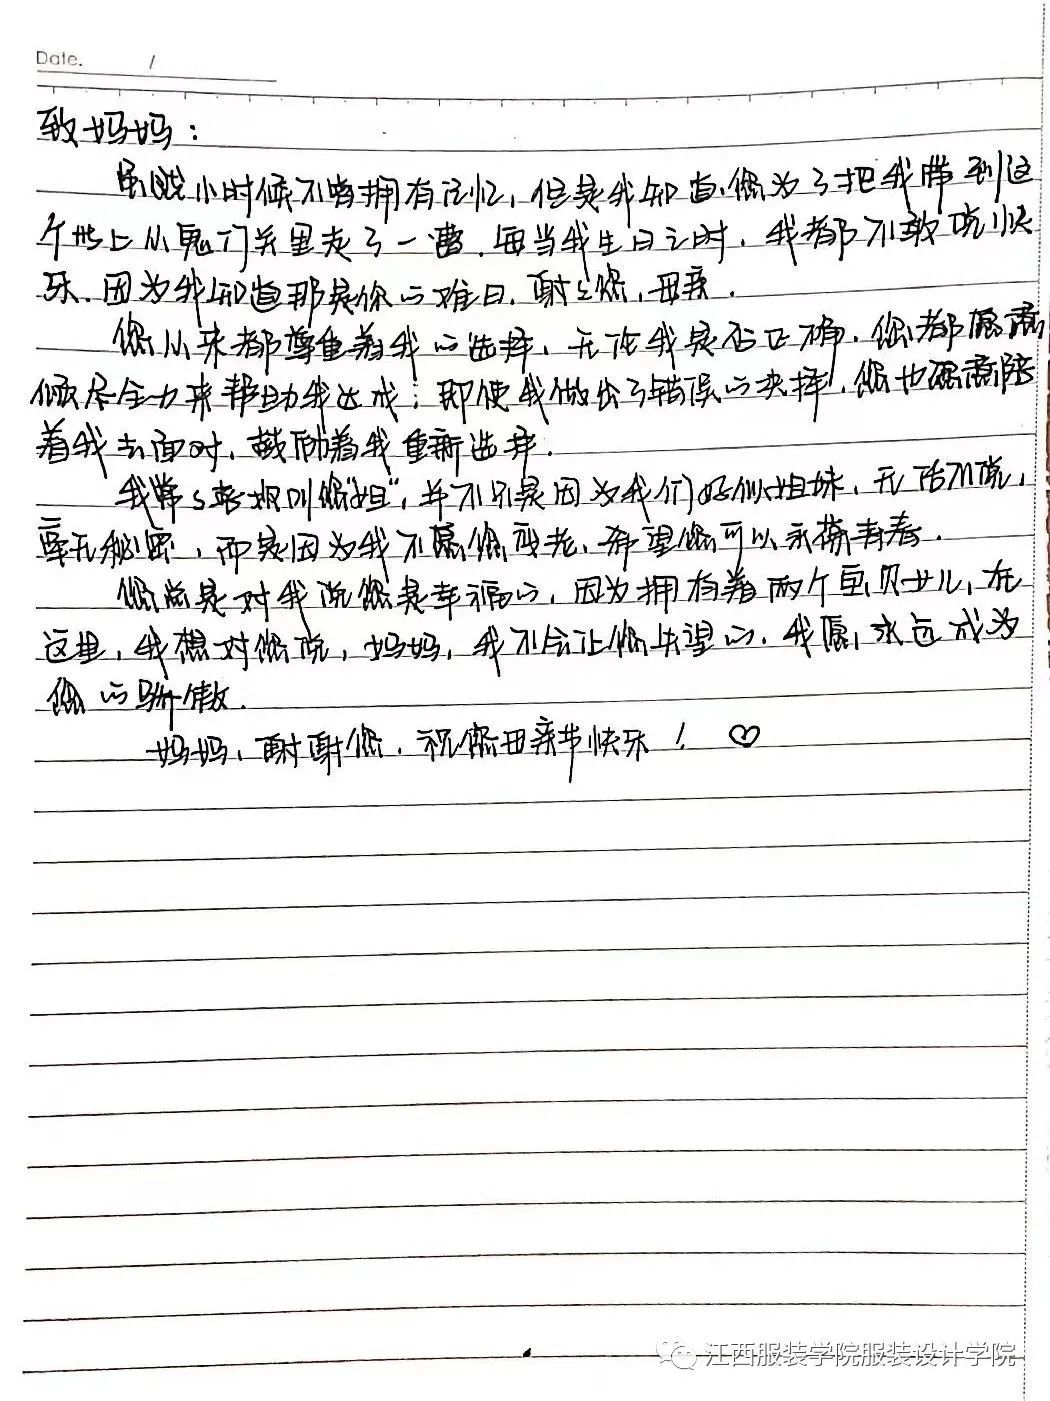 Date. /
致妈妈：
虽然小时候不曾拥有记忆，但是我知道，您为了把我带到这
个世上从鬼门关里走了一遭．每当我生日之时，我都不敢说快
乐．因为我知道那是你的难日．谢谢您，母亲．
您从来都尊重着我的选择，无论我是否正确．您都愿意
倾尽全力来帮助我达成；即使我做出了错误的决择，您也愿意陪
着我去面对，鼓励着我重新选择．
我常常调叫您"姐"，并不只是因为我们好似姐妹，无话不说，
毫无秘密，而是因为我不愿您变老，希望您可以永葆青春．
您总是对我说您是幸福的，因为拥有着两个宝贝女儿，在
这里，我想对您说，妈妈，我不会让您失望的．我愿，永远成为
您的骄傲．
妈妈，谢谢您，祝您母亲节快乐！ ♡
江西服装学院服装设计学院